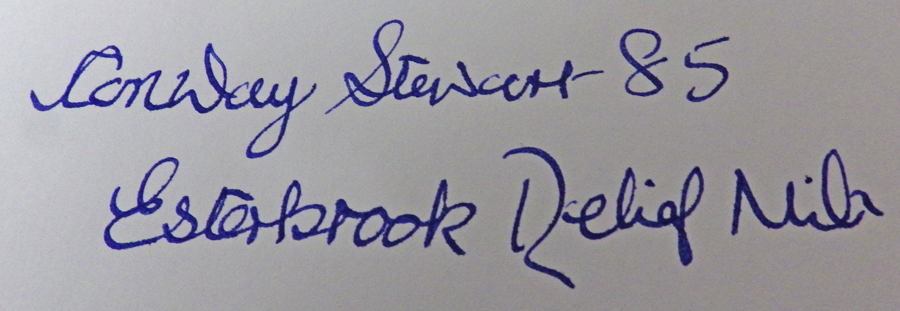 Conway Stewart 85
Esterbrook Relief Nib